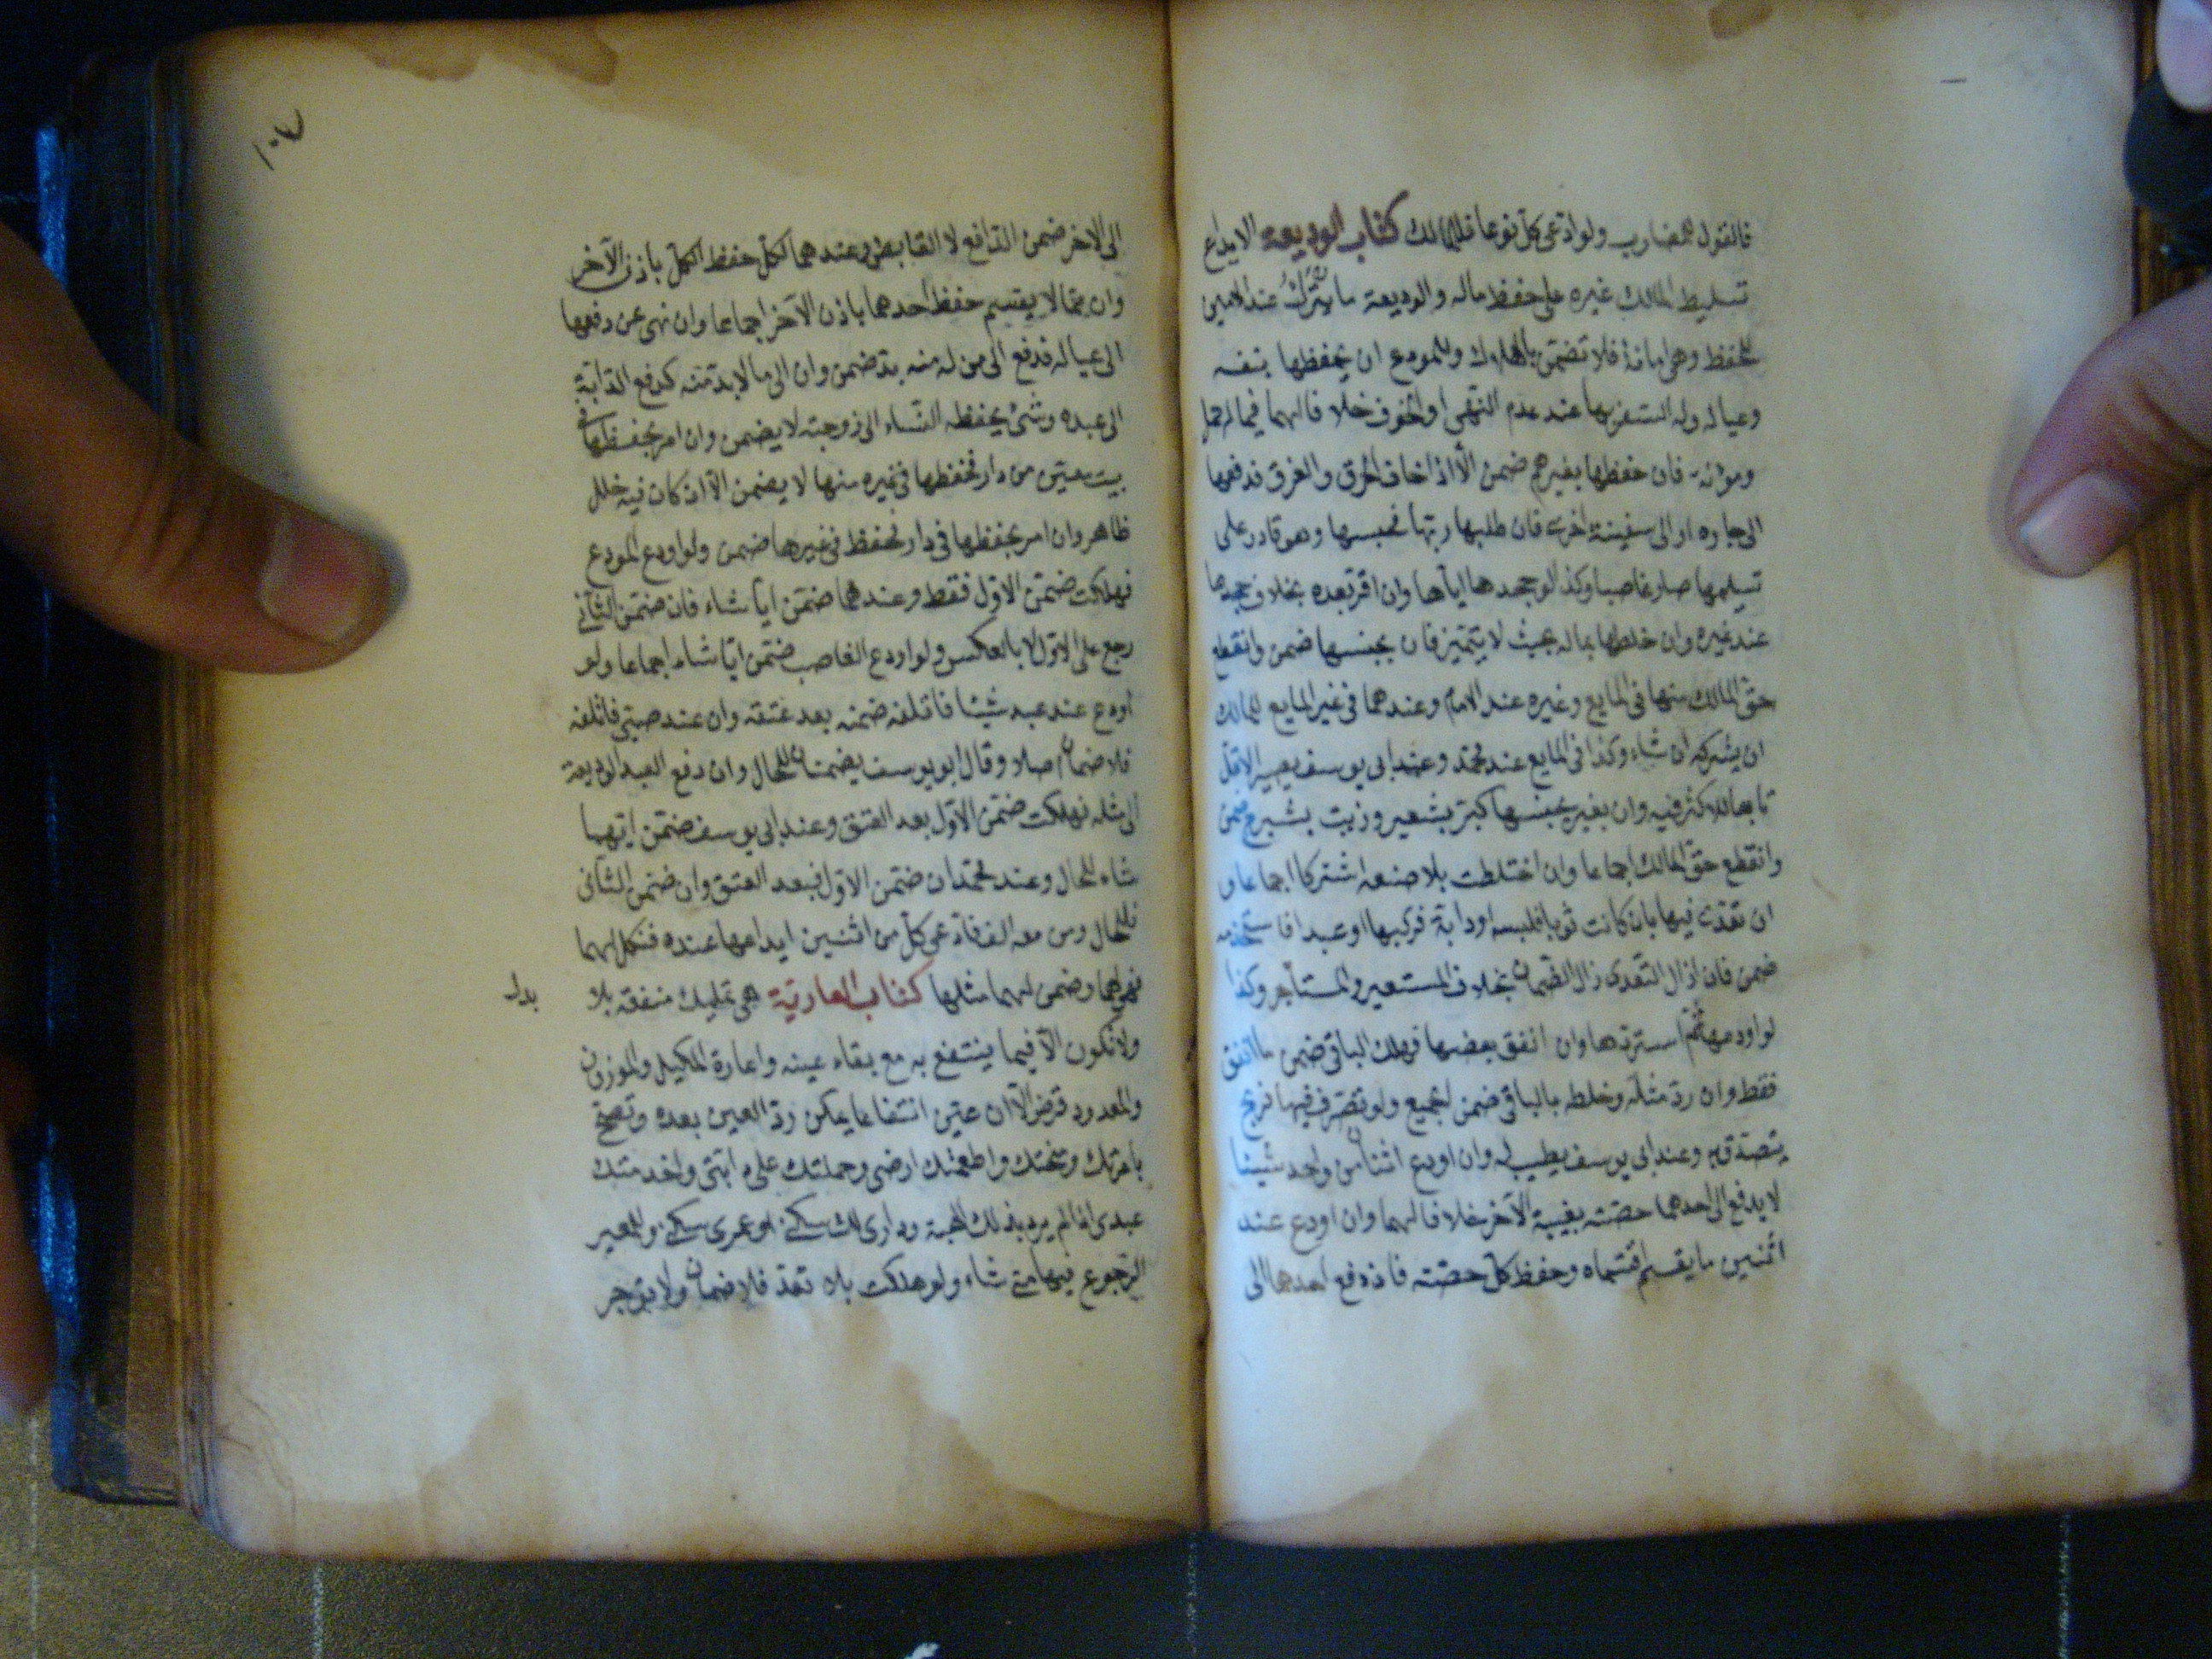 فالقول للمضارب ولو ادعى كل نوعا فللمالك كتاب الوديعة الايداع
تسليط المالك غيره على حفظ ماله والوديعة ما يترك عند الامين
للحفظ وهى امانة فلا تضمن بالهلاك وللمودع ان يحفظها بنفسه
وعياله وله السفر بها عند عدم النهى والخوف خلافا لهما فيما له حمل
ومؤنة فان حفظها بغيرهم ضمن الا اذا خاف الحرق والغرق فدفعها
الى جاره او الى سفينة اخرى فان طلبها ربها فحبسها وهو قادر على
تسليمها صار غاصبا وكذا لو جحدها اياها وان اقر بعده بخلاف جحدها
عند غيره وان خلطها بماله بحيث لا يتميز فان بجنسها ضمن وانقطع
حق المالك منها فى المايع وغيره عند الامام وعندهما فى غير المايع للمالك
ان يشركه ان شاء وكذا فى المايع عند محمد وعند ابى يوسف يصير الاقل
تابعا للاكثر فيه وان بغير جنسها كبر بشعير وزيت بشيرج ضمن
وانقطع حق المالك اجماعا وان اختلطت بلا صنعه اشتركا اجماعا و
ان تعدى فيها بان كانت ثوبا فلبسه او دابة فركبها او عبدا فاستخدمه
ضمن فان ازال التعدى زال الضمان بخلاف المستعير والمستأجر وكذا
لو اودعها ثم استردها وان انفق بعضها فهلك الباقى ضمن ما انفق
فقط وان رد مثله وخلطه بالباقى ضمن الجميع ولو تصرف فيها فربح
يتصدق به وعند ابى يوسف يطيب له وان اودع اثنان من واحد شيئا
لا يدفع الى احدهما حصته بغيبة الآخر خلافا لهما وان اودع عند
اثنين ما يقسم اقتسماه وحفظ كل حصته فان دفع احدهما الى
١٠٧
الى الاخر ضمن الدافع لا القابض وعندهما لكل حفظ الكل باذن الآخر
وان مما لا يقسم حفظ احدهما باذن الآخر اجماعا وان نهى عن دفعها
الى عياله فدفع الى من له منه بد ضمن وان الى ما لا بد منه كدفع الدابة
الى عبده وشئ يحفظه النساء الى زوجته لا يضمن وان امر بحفظها فى
بيت معين من دار فحفظها فى غيره منها لا يضمن الا ان كان فيه خلل
ظاهر وان امر بحفظها فى دار فحفظ فى غيرها ضمن ولو اودع المودع
فهلكت ضمن الاول فقط وعندهما ضمن ايا شاء فان ضمن الثانى
رجع على الاول لا بالعكس ولو اودع الغاصب ضمن ايا شاء اجماعا ولو
اودع عند عبد شيئا فاتلفه ضمنه بعد عتقه وان عند صبى فاتلفه
فلا ضمان اصلا وقال ابو يوسف يضمنان للحال وان دفع العبد الوديعة
الى مثله فهلكت ضمن الاول بعد العتق وعند ابى يوسف ضمن ايهما
شاء للحال وعند محمد ان ضمن الاول فبعد العتق وان ضمن الثانى
فللحال ومن معه الف فادعى كل من اثنين ايداعها عنده فنكل لهما
فهى لهما وضمن لهما مثلها كتاب العارية هى تمليك منفعة بلا
بدل
ولا تكون الا فيما ينتفع به مع بقاء عينه واعارة المكيل والموزون
والمعدود قرض الا ان عين انتفاعا يمكن رد العين بعده وتصح
باعرتك ومنحتك واطعمتك ارضى وحملتك على دابتى واخدمتك
عبدى اذا لم يرد بذلك الهبة ودارى لك سكنى او عمرى سكنى وللمعير
الرجوع فيها متى شاء ولو هلكت بلا تعد فلا ضمان ولا تؤجر